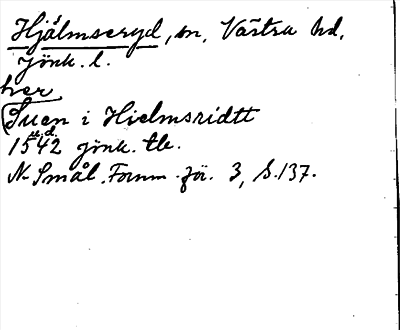 Hjälmseryd, sn, Västra hd,
Jönk. l.
her
Suen i Hielmsridtt
u.d.
1542 jönk. tb.
N. Smål. Fornm. för. 3, S. 137.